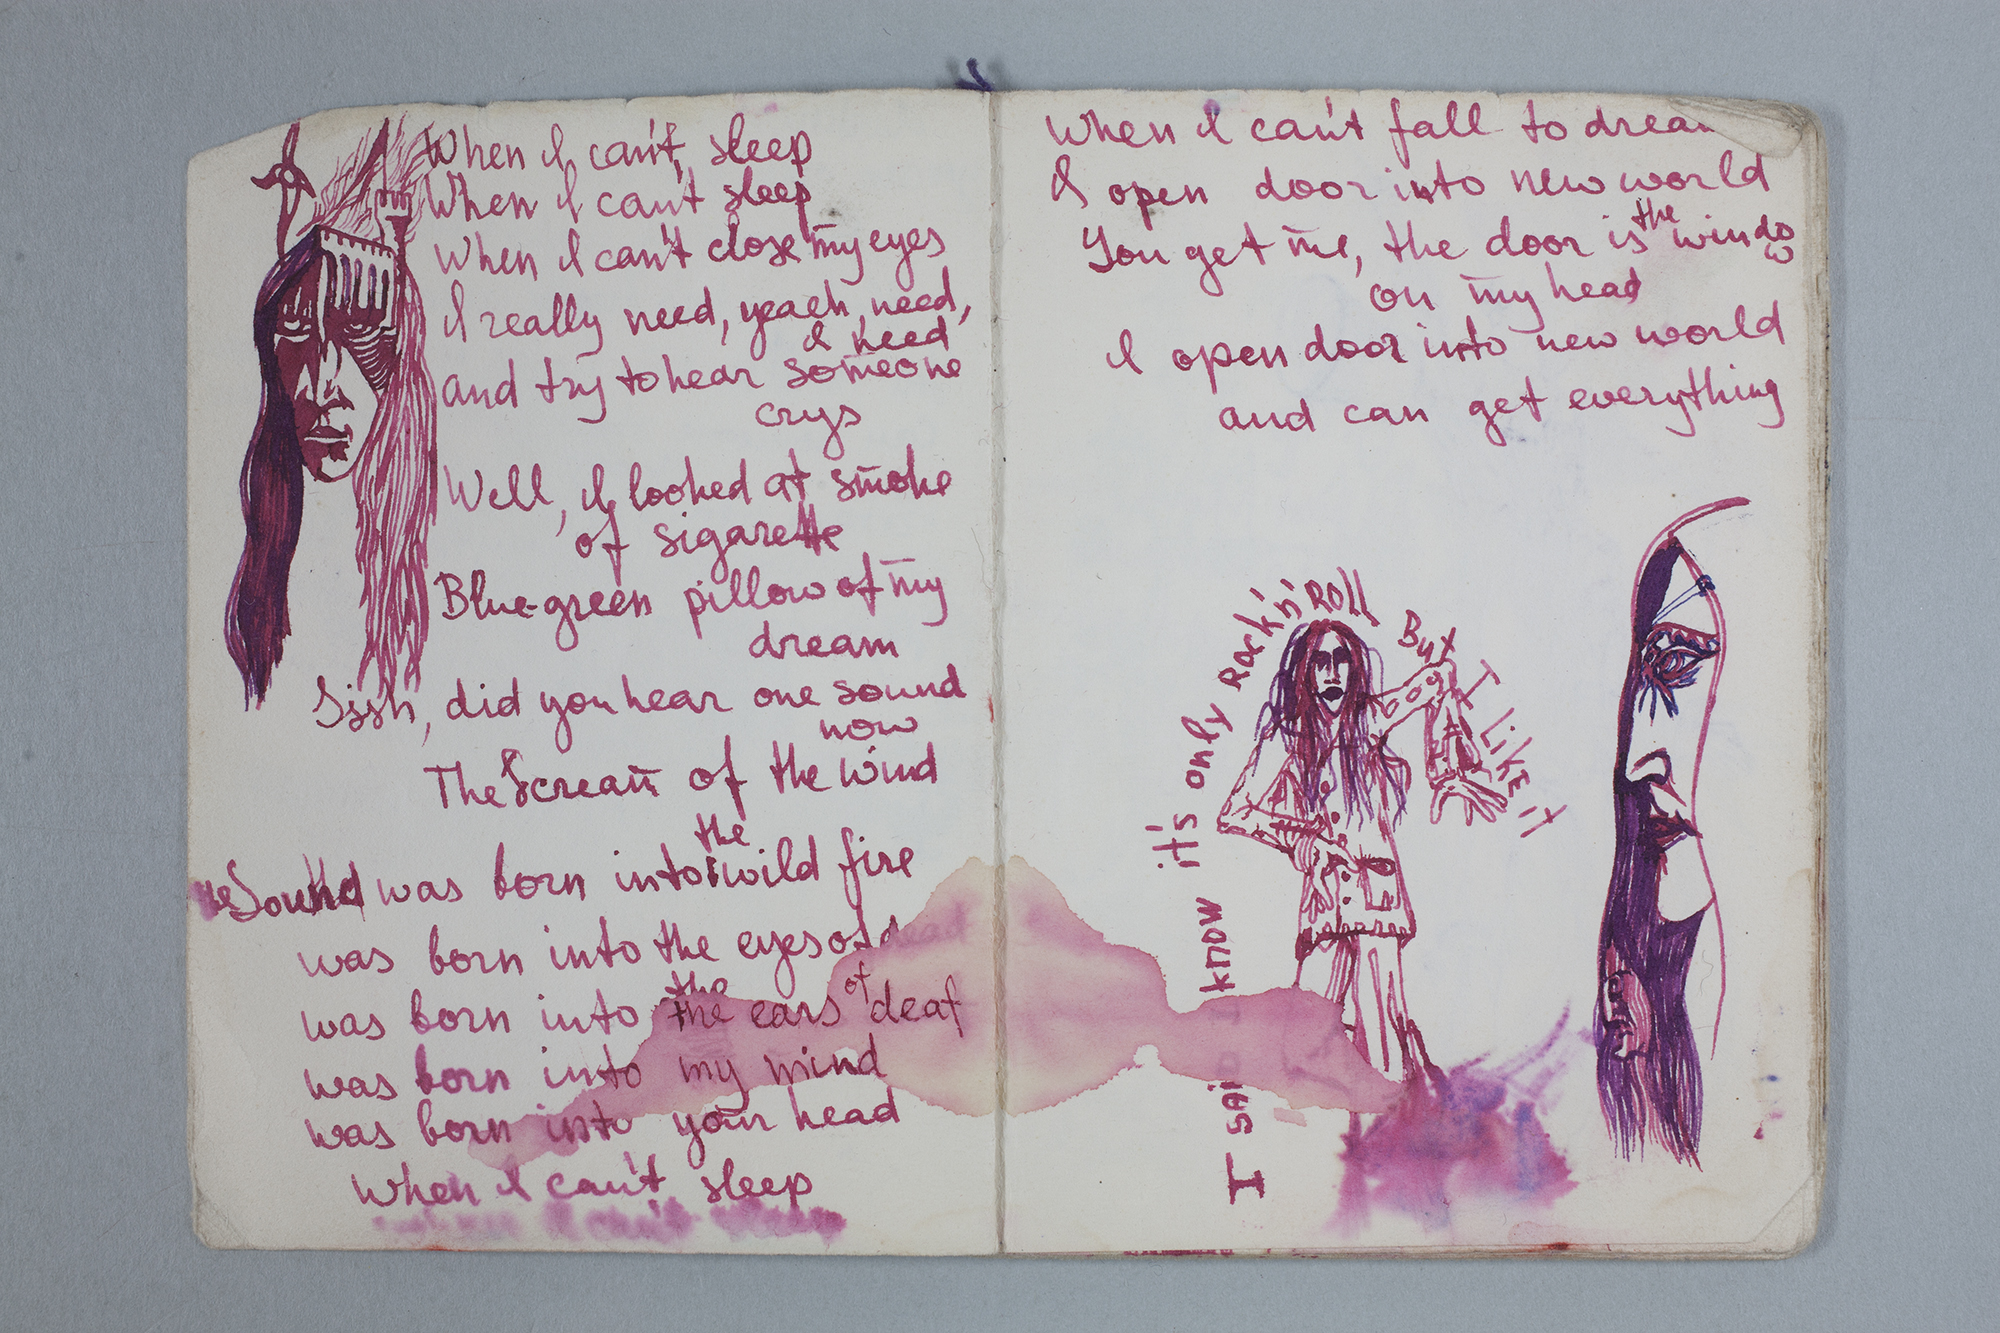 When I can't sleep
When I can't sleep
When I can't close my eyes
I really need, yeach, need,
I need
and try to hear someone
crys
Well, I looked at smoke
of sigarette
Blue-green pillow of my
dream
Sssh, did you hear one sound
now
The Scream of the wind
the
Sound was born into wild fire
was born into the eyes of dead
the
was born into the ears of deaf
was born into my mind
was born into your head
When I can't sleep
When I can't fall to dream
I open door into new world
You get me, the door is the window
on my head
I open door into new world
and can get everything
I said I know it's only Rock'n'Roll But I like it